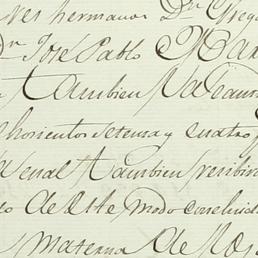 ves hermanos Dn Grego
Dn José Pablo Mar
tambien
chocientos setenta y cuatro
venal tambien recibio
de este modo concluid
materna de Ros